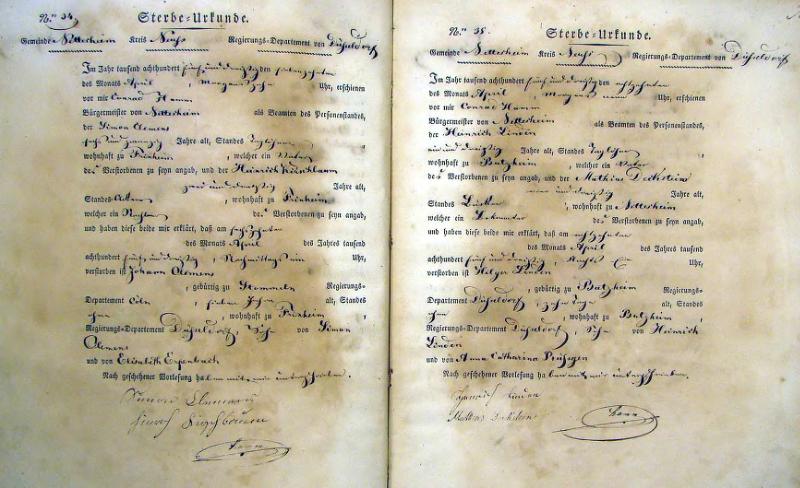 No. 34
Sterbe-Urkunde.
Gemeinde Nettesheim Kreis Neuss Regierungs-Departement von Düsseldorf
Im Jahr tausend achthundert fünf und dreißig den siebzehnten
des Monats April, morgens zehn Uhr, erschienen
vor mir Conrad Hamm
Bürgermeister von Nettesheim als Beamten des Personenstandes,
der Simon Clemens
sechs und zwanzig Jahre alt, Standes Taglöhner
wohnhaft zu Frixheim, welcher ein Vater
des Verstorbenen zu seyn angab, und der Heinrich Kirschbaum
zwei und dreissig Jahre alt,
Standes Ackerer, wohnhaft zu Frixheim,
welcher ein Nachbar des Verstorbenen zu seyn angab,
und haben diese beide mir erklärt, daß am sechszehnten
des Monats April des Jahres tausend
achthundert fünf und dreissig, Nachmittags ein Uhr,
verstorben ist Johann Clemens
, gebürtig zu Stommeln Regierungs-
Departement Cöln, sieben Jahre alt, Standes
ohne, wohnhaft zu Frixheim
Regierungs-Departement Düsseldorf, Sohn von Simon
Clemens
und von Elisabeth Espenbach
Nach geschehener Vorlesung haben mit mir unterschrieben.
Simon Clemens
Hamm
No. 35
Sterbe-Urkunde.
Gemeinde Nettesheim Kreis Neuss Regierungs-Departement von Düsseldorf
Im Jahr tausend achthundert fünf und dreißig den achtzehnten
des Monats April morgens neun Uhr, erschienen
vor mir Conrad Hamm
Bürgermeister von Nettesheim als Beamten des Personenstandes,
der Heinrich Linden
und dreißig Jahre alt, Standes Taglöhner
wohnhaft zu Butzheim, welcher ein Vater
des Verstorbenen zu seyn angab, und der Mathias Deckstein
und dreissig Jahre alt,
Standes, wohnhaft zu Nettesheim
welcher ein Bekannter des Verstorbenen zu seyn angab,
und haben diese beide mir erklärt, daß am achtzehnten
des Monats April des Jahres tausend
achthundert fünf und dreissig, Nachts Ein Uhr,
verstorben ist Hilger Linden
, gebürtig zu Butzheim Regierungs-
Departement Düsseldorf, zehn Tage alt, Standes
ohne, wohnhaft zu Butzheim
Regierungs-Departement Düsseldorf, Sohn von Heinrich
Linden
und von Anna Catharina
Nach geschehener Vorlesung haben mit mir unterschrieben.
Heinrich Linden
Mathias Deckstein
Hamm